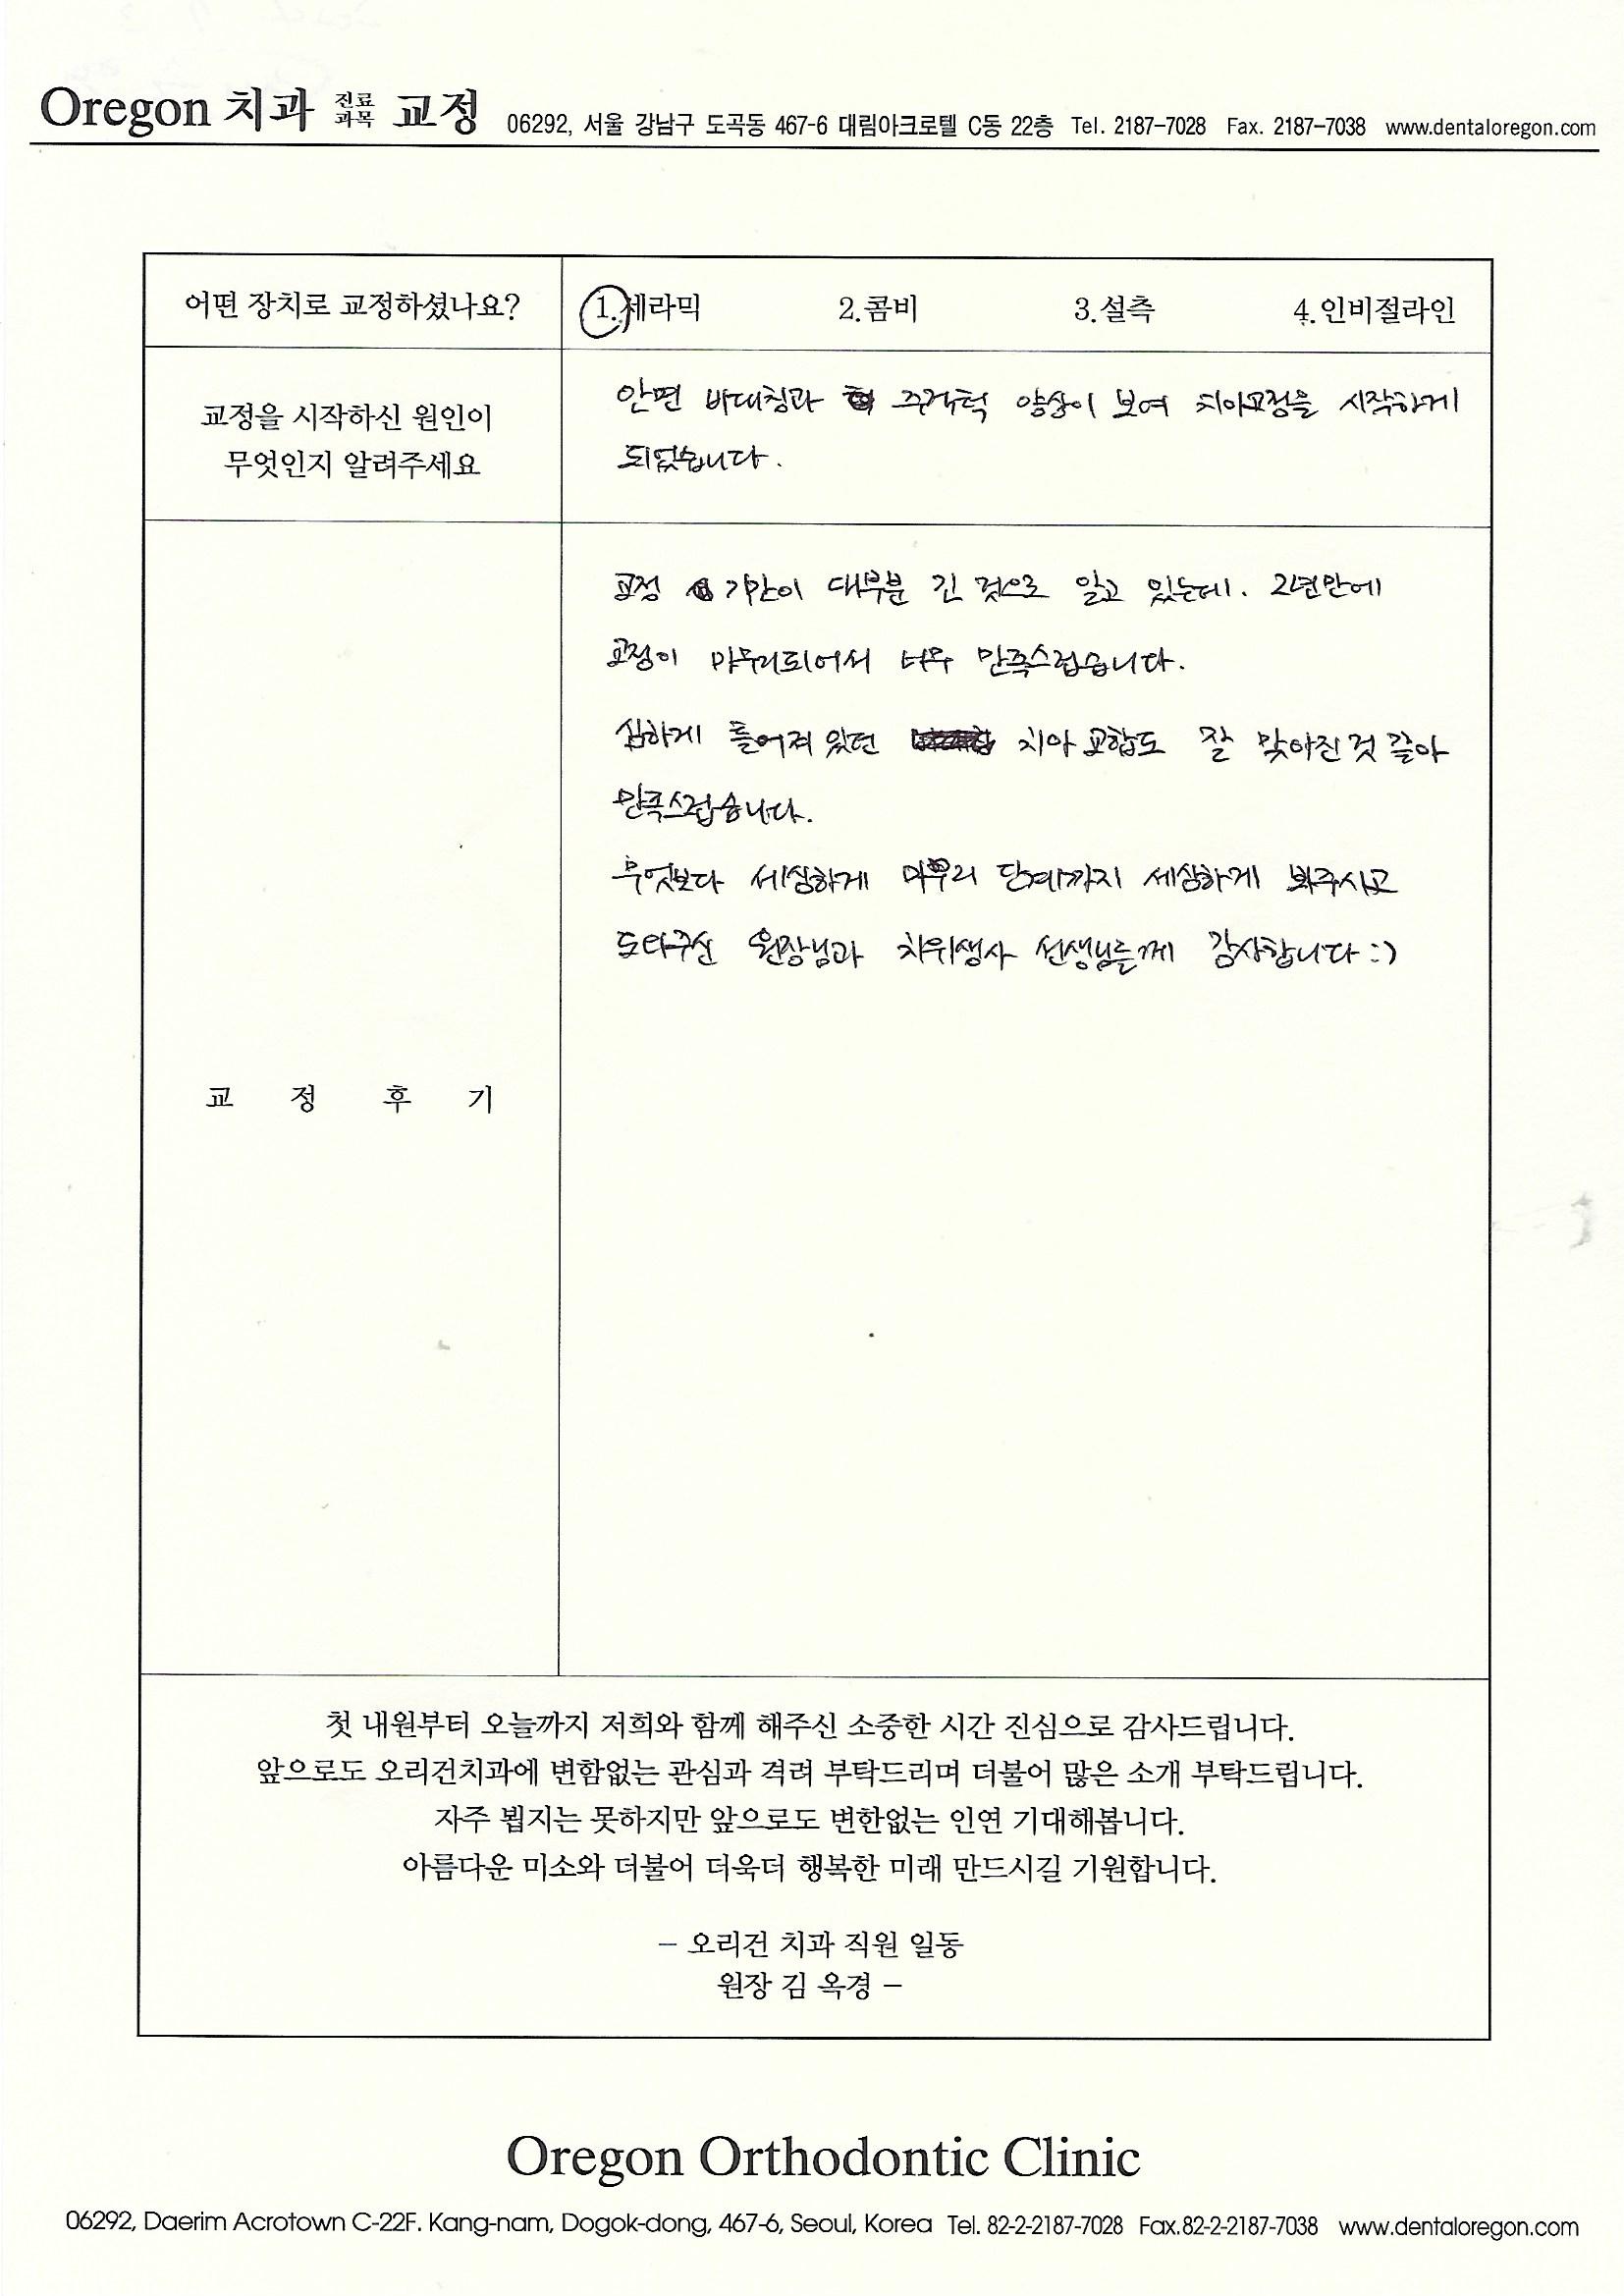 Oregon 치과 진료과목 교정 06292, 서울 강남구 도곡동 467-6 대림아크로텔 C동 22층 Tel. 2187-7028 Fax. 2187-7038 www.dentaloregon.com
어떤 장치로 교정하셨나요? 1.세라믹 2.콤비 3.설측 4.인비절라인
교정을 시작하신 원인이
무엇인지 알려주세요
안면 비대칭과 주걱턱 양상이 보여 치아교정을 시작하게
되었습니다.
교정 후기
교정 기간이 대부분 긴 것으로 알고 있는데. 2년만에
교정이 마무리되어서 너무 만족스럽습니다.
심하게 틀어져 있던 치아 교합도 잘 맞아진 것 같아
만족스럽습니다.
무엇보다 세심하게 마무리 단계까지 세심하게 봐주시고
도와주신 원장님과 치위생사 선생님들께 감사합니다 :)
첫 내원부터 오늘까지 저희와 함께 해주신 소중한 시간 진심으로 감사드립니다.
앞으로도 오리건치과에 변함없는 관심과 격려 부탁드리며 더불어 많은 소개 부탁드립니다.
자주 뵙지는 못하지만 앞으로도 변한없는 인연 기대해봅니다.
아름다운 미소와 더불어 더욱더 행복한 미래 만드시길 기원합니다.
– 오리건 치과 직원 일동
원장 김 옥경 –
Oregon Orthodontic Clinic
06292, Daerim Acrotown C-22F. Kang-nam, Dogok-dong, 467-6, Seoul, Korea Tel. 82-2-2187-7028 Fax.82-2-2187-7038 www.dentaloregon.com